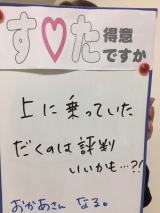 す♡た 得意
ですか
上に乗っていた
だくのは評判
いいかも…?!
おかあさん なる。